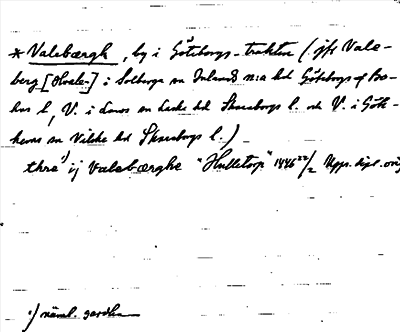 * Valebærgh, by i Göteborgs-trakten (jfr Vale-
berg [Hvale-] i Solberga sn Inlands n:a hd Göteborgs o Bo-
hus l, V. i Levos sn Leske hd Skaraborgs l. och V. i Göte-
kevas sn Vilske hd Skaraborgs l.)
thre 1) ij Valebærghe "Hulletorp" 1446 22/2 Upps. dipl. orig
1) näml. gardha